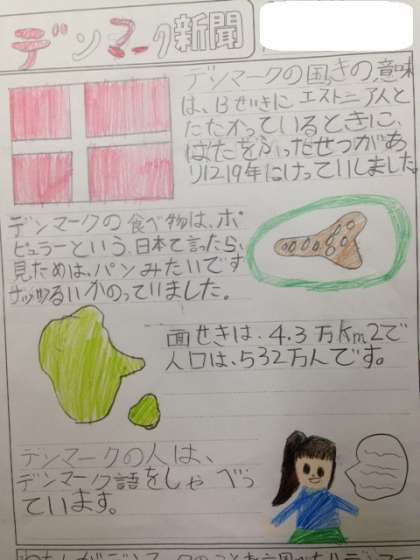 デンマーク新聞
デンマークの国きの意味
は、13せいきにエストニア人と
たたかっているときに、
はたをふったせつがあ
り1219年にけっていしました。
デンマークの食べ物は、ポ
ピュラーという、日本で言ったら、
見ためは、パンみたいです
ナッツめるいがのっていました。
面せきは、4.3万Km2で
人口は、532万人です。
デンマークの人は、
デンマーク語をしゃべっ
ています。